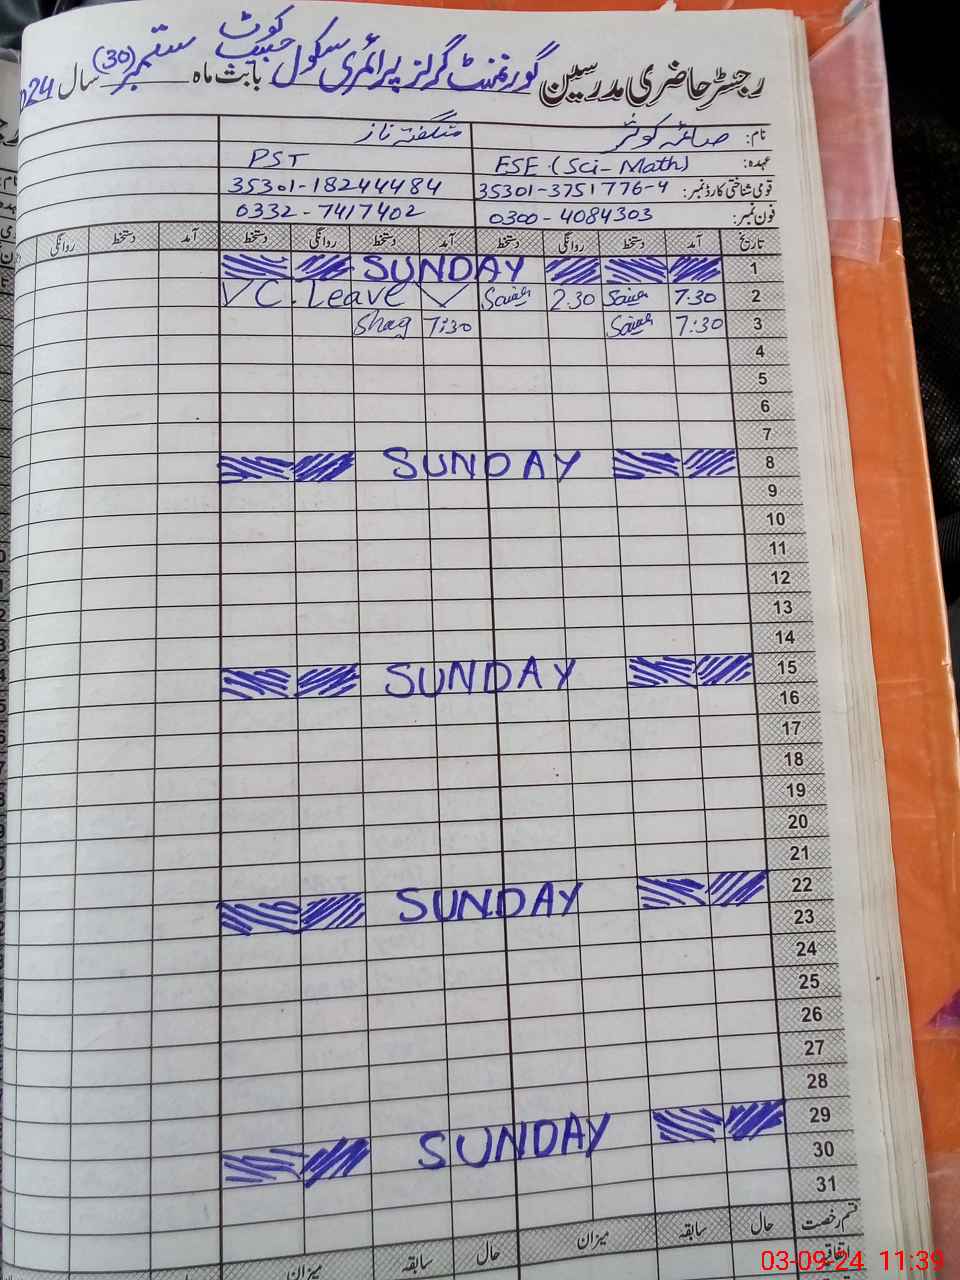 رجسٹر حاضری مدرسین گورنمنٹ گرلز پرائمری سکول حبیب کوٹ بابت ماہ ستمبر (30) سال 2024
نام: صائمہ کوثر شگفتہ ناز
عہدہ: ESE (Sci-Math) PST
قومی شناختی کارڈ نمبر: 35301-3751776-4 35301-18244484
فون نمبر: 0300-4084303 0332-7417402
تاریخ آمد دستخط روانگی دستخط آمد دستخط روانگی دستخط آمد دستخط روانگی
1 SUNDAY
2 7.30 Saima 2.30 Saima C. Leave
3 7:30 Saima 7:30 Shag
4
5
6
7
8 SUNDAY
9
10
11
12
13
14
15 SUNDAY
16
17
18
19
20
21
22 SUNDAY
23
24
25
26
27
28
29 SUNDAY
30
31
قسم رخصت حال سابقہ میزان حال سابقہ میزان
اتفاقیہ
03-09-24 11:39